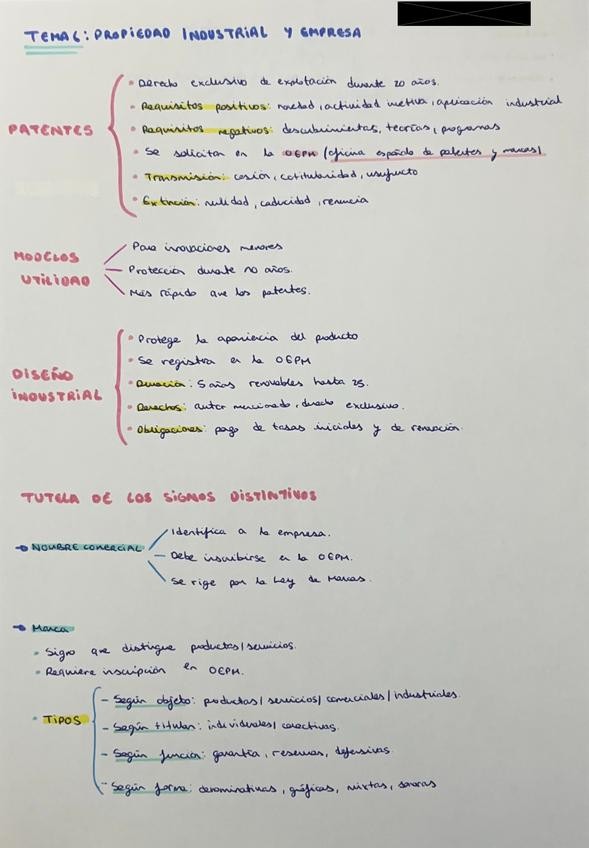 TEMA 6: PROPIEDAD INDUSTRIAL Y EMPRESA
PATENTES
• Derecho exclusivo de explotación durante 20 años.
• Requisitos positivos: novedad, actividad inventiva, aplicación industrial
• Requisitos negativos: descubrimientos, teorías, programas
• Se solicitan en la OEPM (oficina española de patentes y marcas)
• Transmisión: cesión, cotitularidad, usufructo
• Extinción: nulidad, caducidad, renuncia
MODELOS UTILIDAD
Para innovaciones menores
Protección durante 10 años.
Más rápido que las patentes.
DISEÑO INDUSTRIAL
• Protege la apariencia del producto
• Se registra en la OEPM
• Duración: 5 años renovables hasta 25.
• Derechos: autor mencionado, derecho exclusivo.
• Obligaciones: pago de tasas iniciales y de renovación.
TUTELA DE LOS SIGNOS DISTINTIVOS
→ NOMBRE COMERCIAL
Identifica a la empresa.
Debe inscribirse en la OEPM.
Se rige por la Ley de Marcas.
→ Marca
• Signo que distingue productos/servicios.
• Requiere inscripción en OEPM.
• TIPOS
- Según objeto: productos/servicios/comerciales/industriales.
- Según titular: individuales/colectivas.
- Según función: garantía, reservas, defensivas.
- Según forma: denominativas, gráficas, mixtas, sonoras